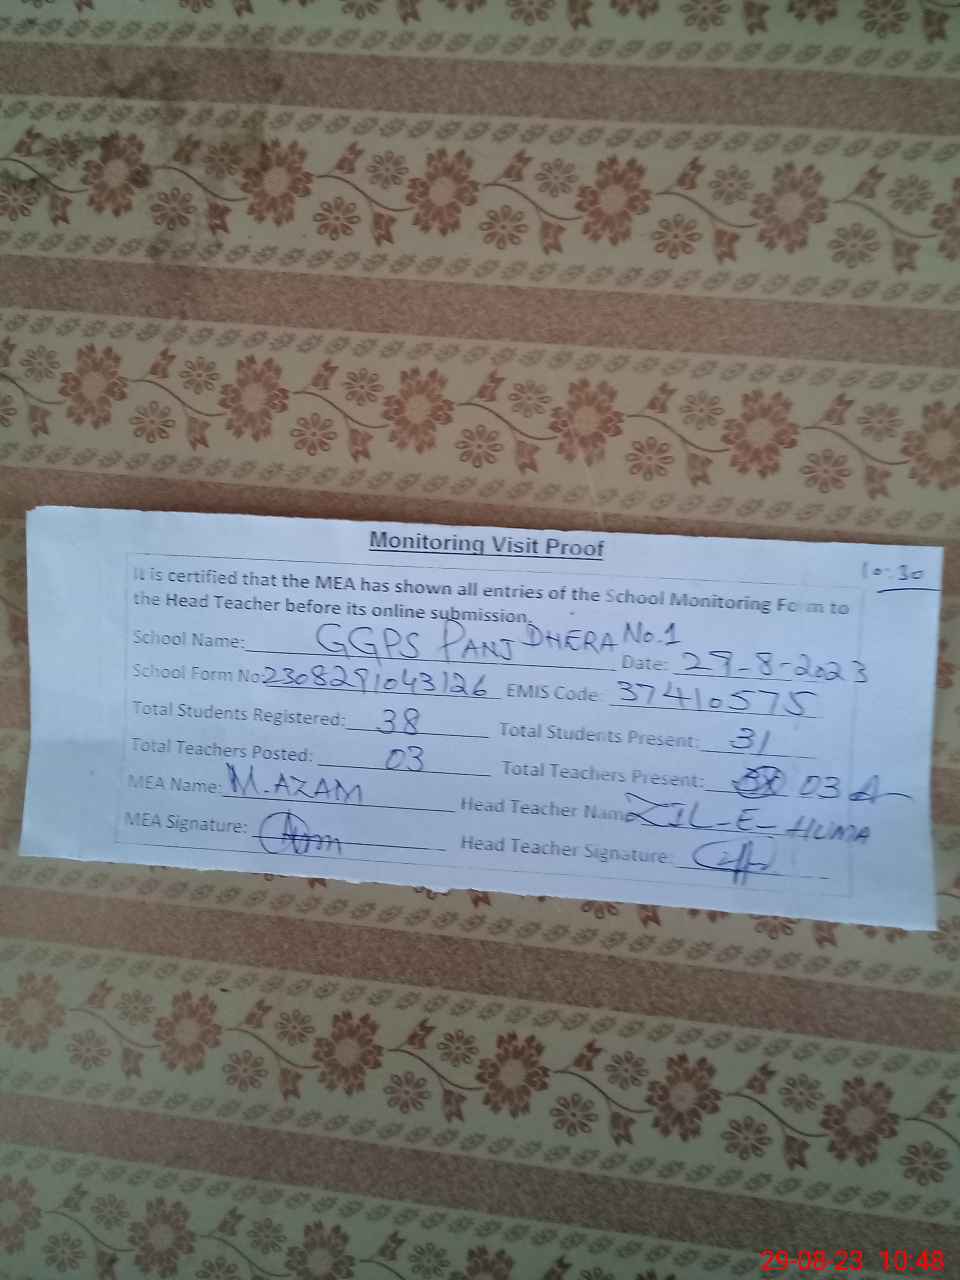 Monitoring Visit Proof
10:30
It is certified that the MEA has shown all entries of the School Monitoring Form to
the Head Teacher before its online submission.
School Name: GGPS PANJ DHERA No.1 Date: 29-8-2023
School Form No: 2308291043126 EMIS Code: 37410575
Total Students Registered: 38 Total Students Present: 31
Total Teachers Posted: 03 Total Teachers Present: 03
MEA Name: M.AZAM Head Teacher Name ZIL-E-HUMA
MEA Signature: Head Teacher Signature:
29-08-23 10:48